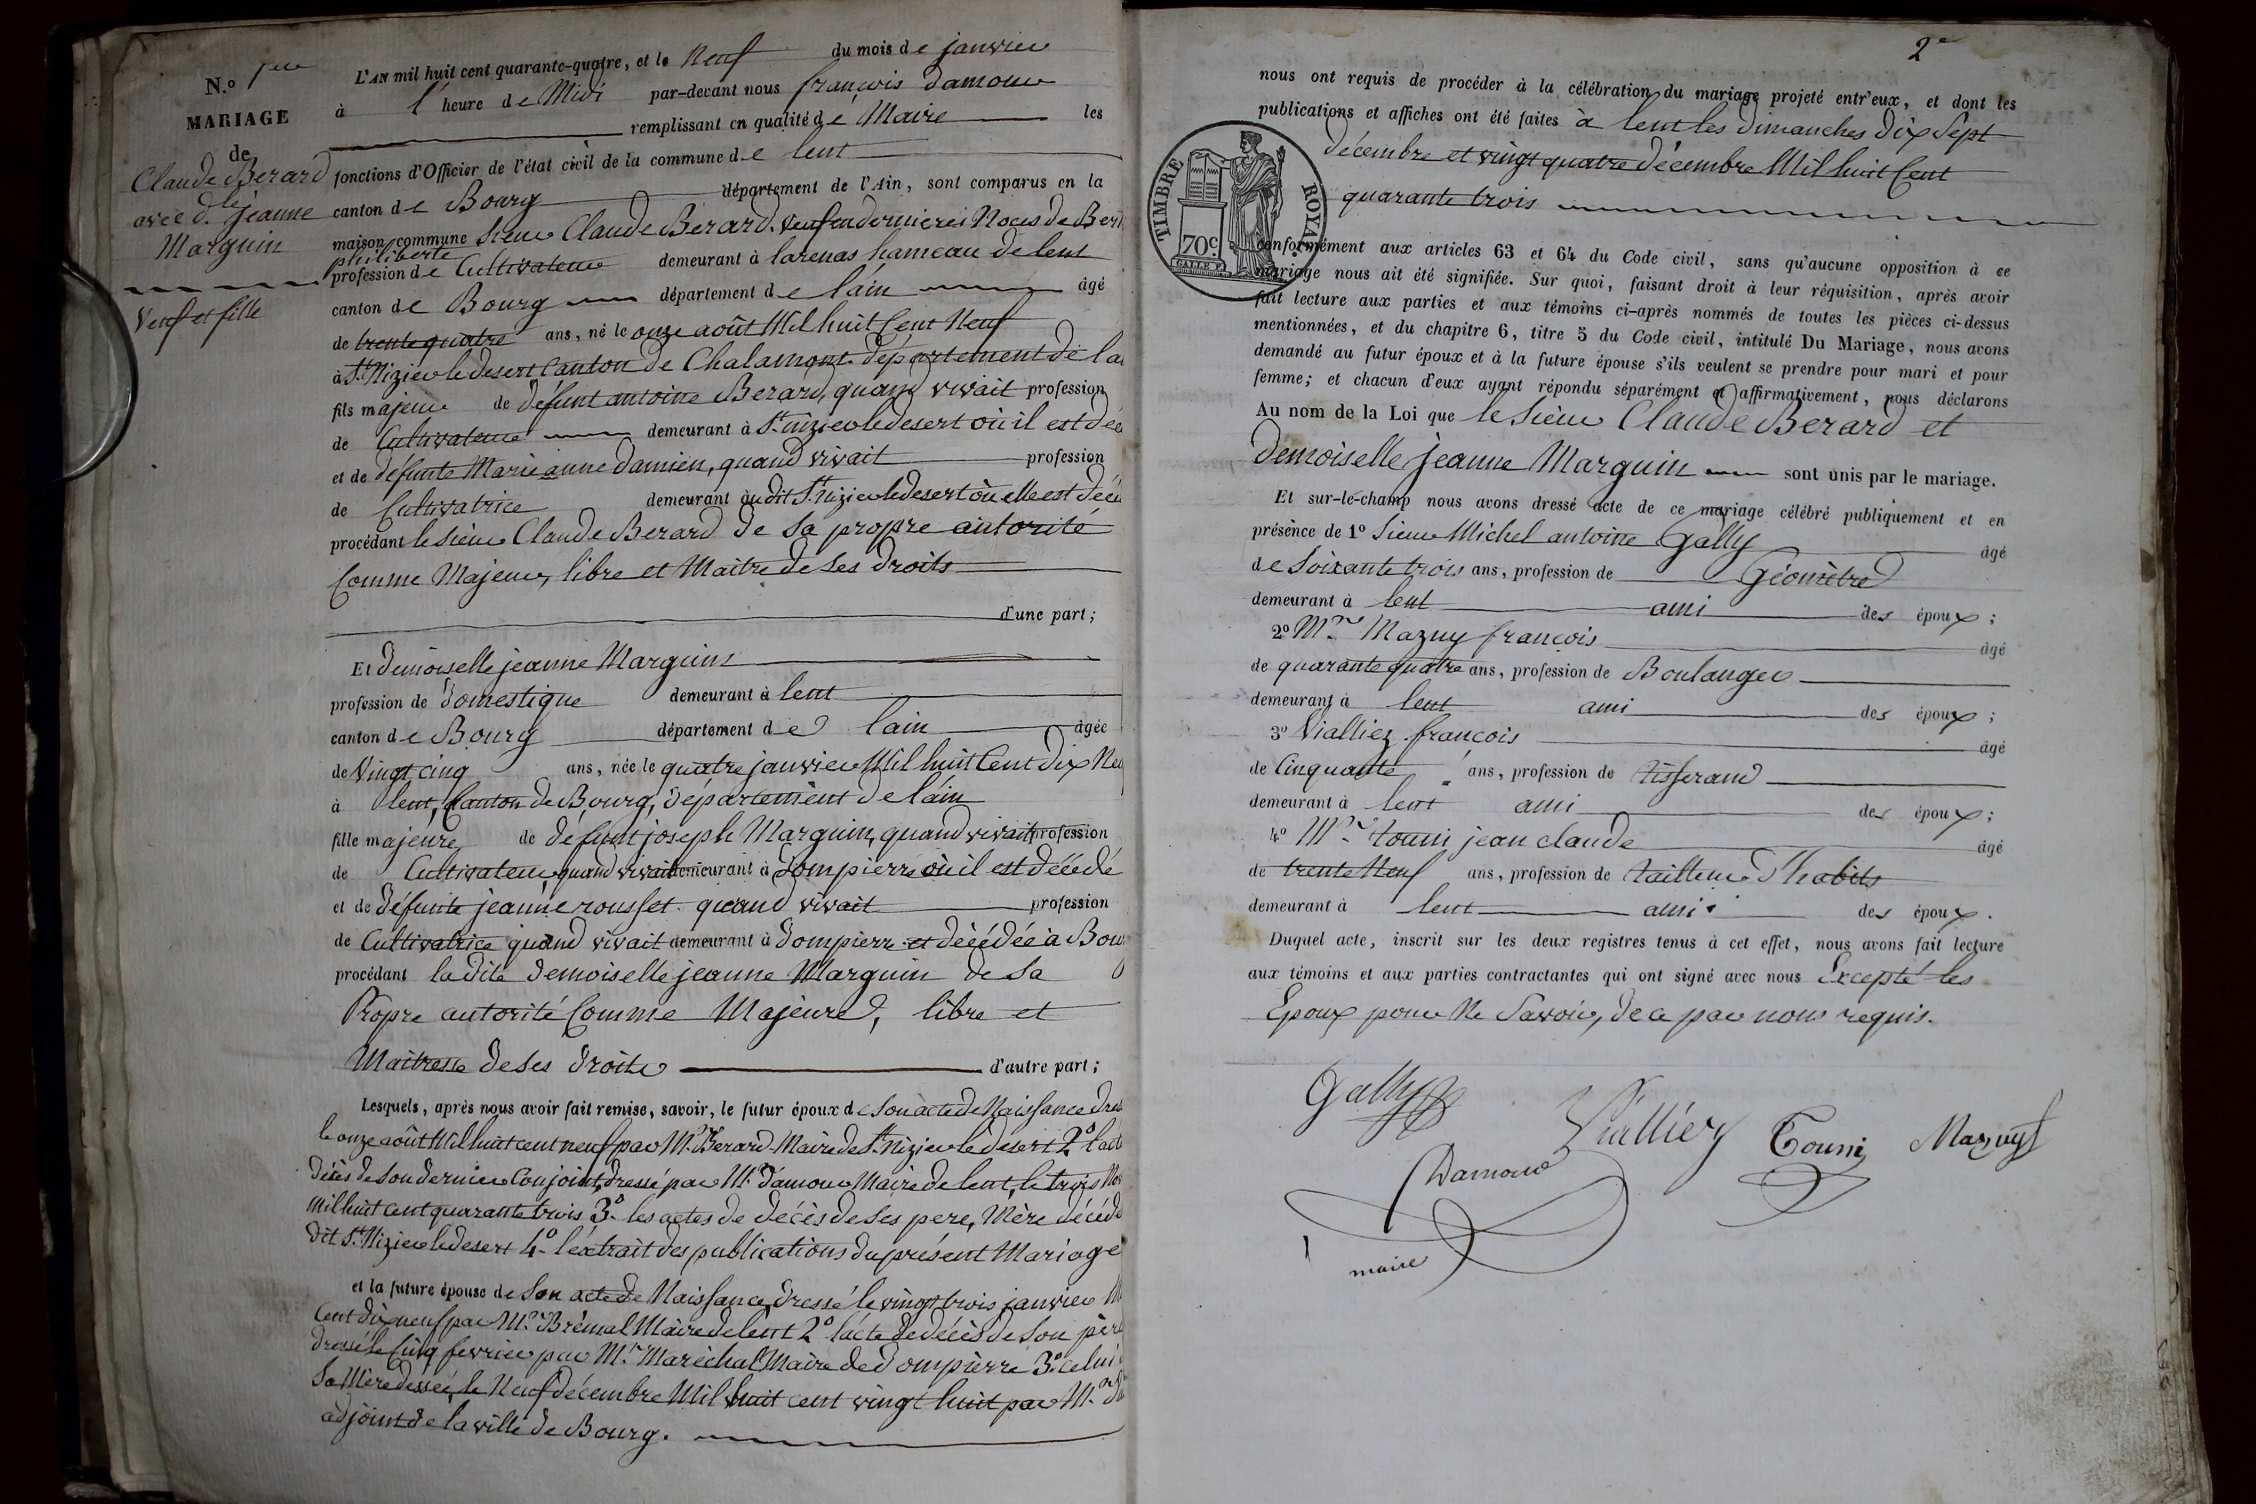 N.o 1er
MARIAGE
de
Claude Berard
avec d.lle jeanne
Marguin
Veuf et fille
L'AN mil huit cent quarante-quatre, et le Neuf du mois de janvier
à l'heure de Midi par-devant nous françois damour
remplissant en qualité de Maire les
fonctions d'Officier de l'état civil de la commune de lent
canton de Bourg département de l'Ain, sont comparus en la
maison commune Sieur Claude Berard, veuf en dernieres Noces de
philiberte
profession de Cultivateur demeurant à larenas hameau de lent
canton de Bourg département de l'ain âgé
de trente quatre ans, né le onze août Mil huit Cent Neuf
à St Nizier le desert Canton de Chalamont département de
fils majeur de défunt antoine Berard, quand vivait profession
de Cultivateur demeurant à St nizier le desert où il est
et de défunte Marie anne damien, quand vivait profession
de Cultivatrice demeurant audit St nizier le desert où elle est
procédant le sieur Claude Berard de Sa propre autorité
Comme Majeur, libre et Maitre de Ses droits
d'une part;
Et demoiselle jeanne Marguin
profession de Domestique demeurant à lent
canton de Bourg département de lain âgée
de Vingt cinq ans, née le quatre janvier Mil huit Cent Dix
à lent, Canton de Bourg, département de l'ain
fille majeure de défunt joseph Marguin, quand vivait profession
de Cultivateur quand vivait demeurant à Dompierre où il est décédé
et de défunte jeanne rousset quand vivait profession
de Cultivatrice quand vivait demeurant à dompierre et décédée à
procédant la dite demoiselle jeanne Marguin de Sa
Propre autorité Comme Majeure, libre et
Maitresse de Ses droits d'autre part;
Lesquels, après nous avoir fait remise, savoir, le futur époux de Son acte de Naissance
le onze août Mil huit cent neuf par Mr. Berard Maire de St. Nizier le desert 2o
décès de Son dernier Conjoint, dressé par Mr. damour Maire de lent, le trois
mil huit cent quarante trois 3o les actes de décès de Ses pere, Mère
dit St. Nizier le desert 4o l'extrait des publications du présent Mariage
et la future épouse de Son acte de Naissance, dressé le vingt trois janvier
Cent dix neuf par Mr. Maire de lent 2o l'acte de décès de Son
dressé le Cinq fevrier par Mr. Maréchal Maire de Dompierre 3o celui
Sa Mère dressé, le Neuf décembre Mil huit cent vingt huit par Mr.
adjoint de la ville de Bourg.
2e
nous ont requis de procéder à la célébration du mariage projeté entr'eux, et dont les
publications et affiches ont été faites à lent les dimanches dix Sept
décembre et vingt quatre décembre Mil huit Cent
quarante trois
TIMBRE ROYAL
70c.
conformément aux articles 63 et 64 du Code civil, sans qu'aucune opposition à ce
mariage nous ait été signifiée. Sur quoi, faisant droit à leur réquisition, après avoir
fait lecture aux parties et aux témoins ci-après nommés de toutes les pièces ci-dessus
mentionnées, et du chapitre 6, titre 5 du Code civil, intitulé Du Mariage, nous avons
demandé au futur époux et à la future épouse s'ils veulent se prendre pour mari et pour
femme; et chacun d'eux ayant répondu séparément et affirmativement, nous déclarons
Au nom de la Loi que le Sieur Claude Berard et
demoiselle jeanne Marguin sont unis par le mariage.
Et sur-le-champ nous avons dressé acte de ce mariage célébré publiquement et en
présence de 1o Sieur Michel antoine Gally âgé
de Soixante trois ans, profession de Géomètre
demeurant à lent ami des époux;
2o Mr. Mazuy françois âgé
de quarante quatre ans, profession de Boulanger
demeurant à lent ami des époux;
3o Vialliez françois âgé
de Cinquante ans, profession de tisserand
demeurant à lent ami des époux;
4o Mr. touni jean claude âgé
de trente Neuf ans, profession de tailleur d'habits
demeurant à lent ami des époux.
Duquel acte, inscrit sur les deux registres tenus à cet effet, nous avons fait lecture
aux témoins et aux parties contractantes qui ont signé avec nous Excepté les
Epoux pour Ne Savoir, de ce par nous requis.
Gally Vialliez Touni Mazuy
Damour
maire